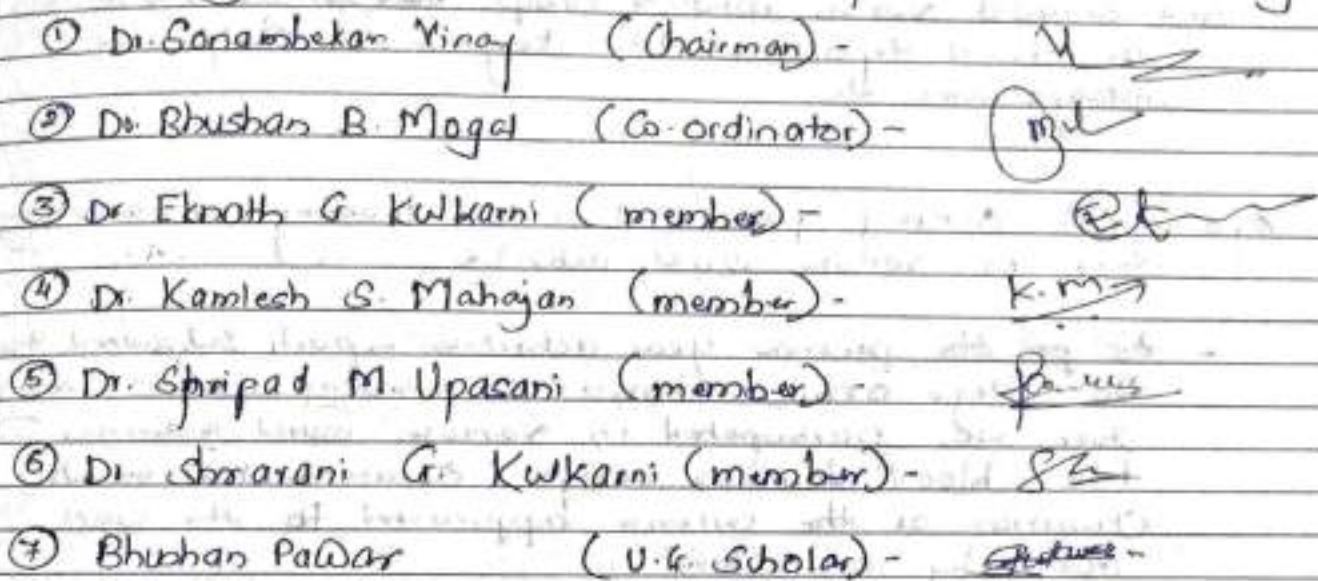 ① Dr. Sonambekar Vinay (Chairman) -
② Dr. Bhushan B. Mogal (Co-ordinator) -
③ Dr. Eknath G. Kulkarni (member) -
④ Dr. Kamlesh S. Mahajan (member) - K.M
⑤ Dr. Shripad M. Upasani (member) -
⑥ Dr. Smarani G. Kulkarni (member) -
⑦ Bhushan Pawar (U.G. Scholar) -